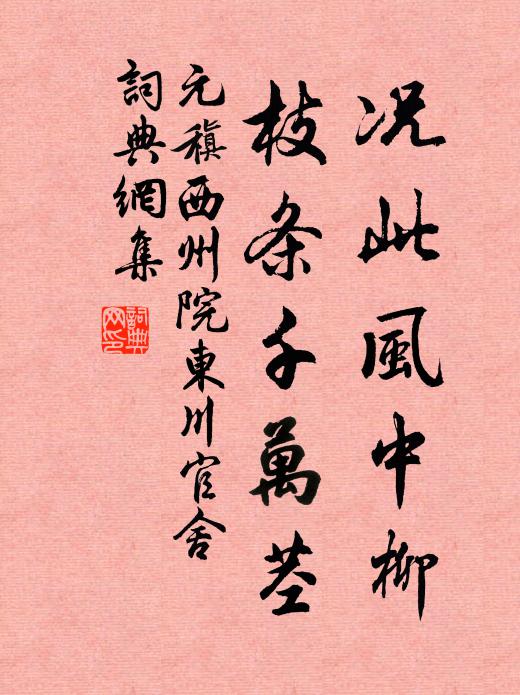 况此風中柳
枝条千萬茎
元稹西州院東川官舍
詞典網集
詞典
网印